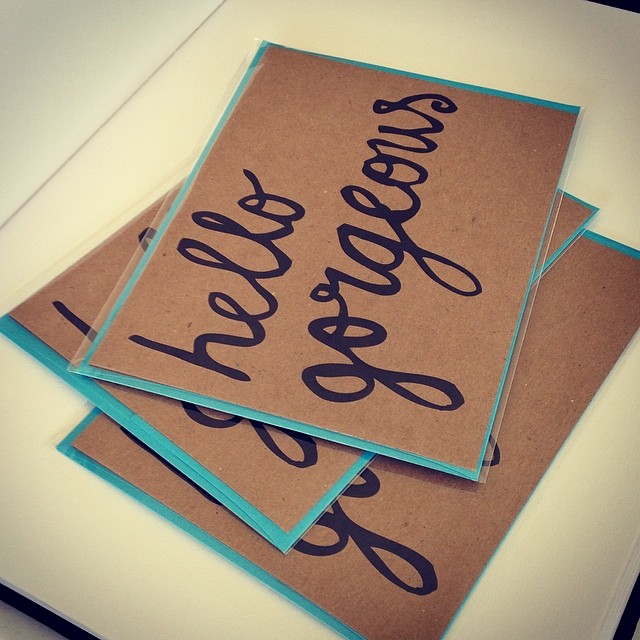 hello
gorgeous